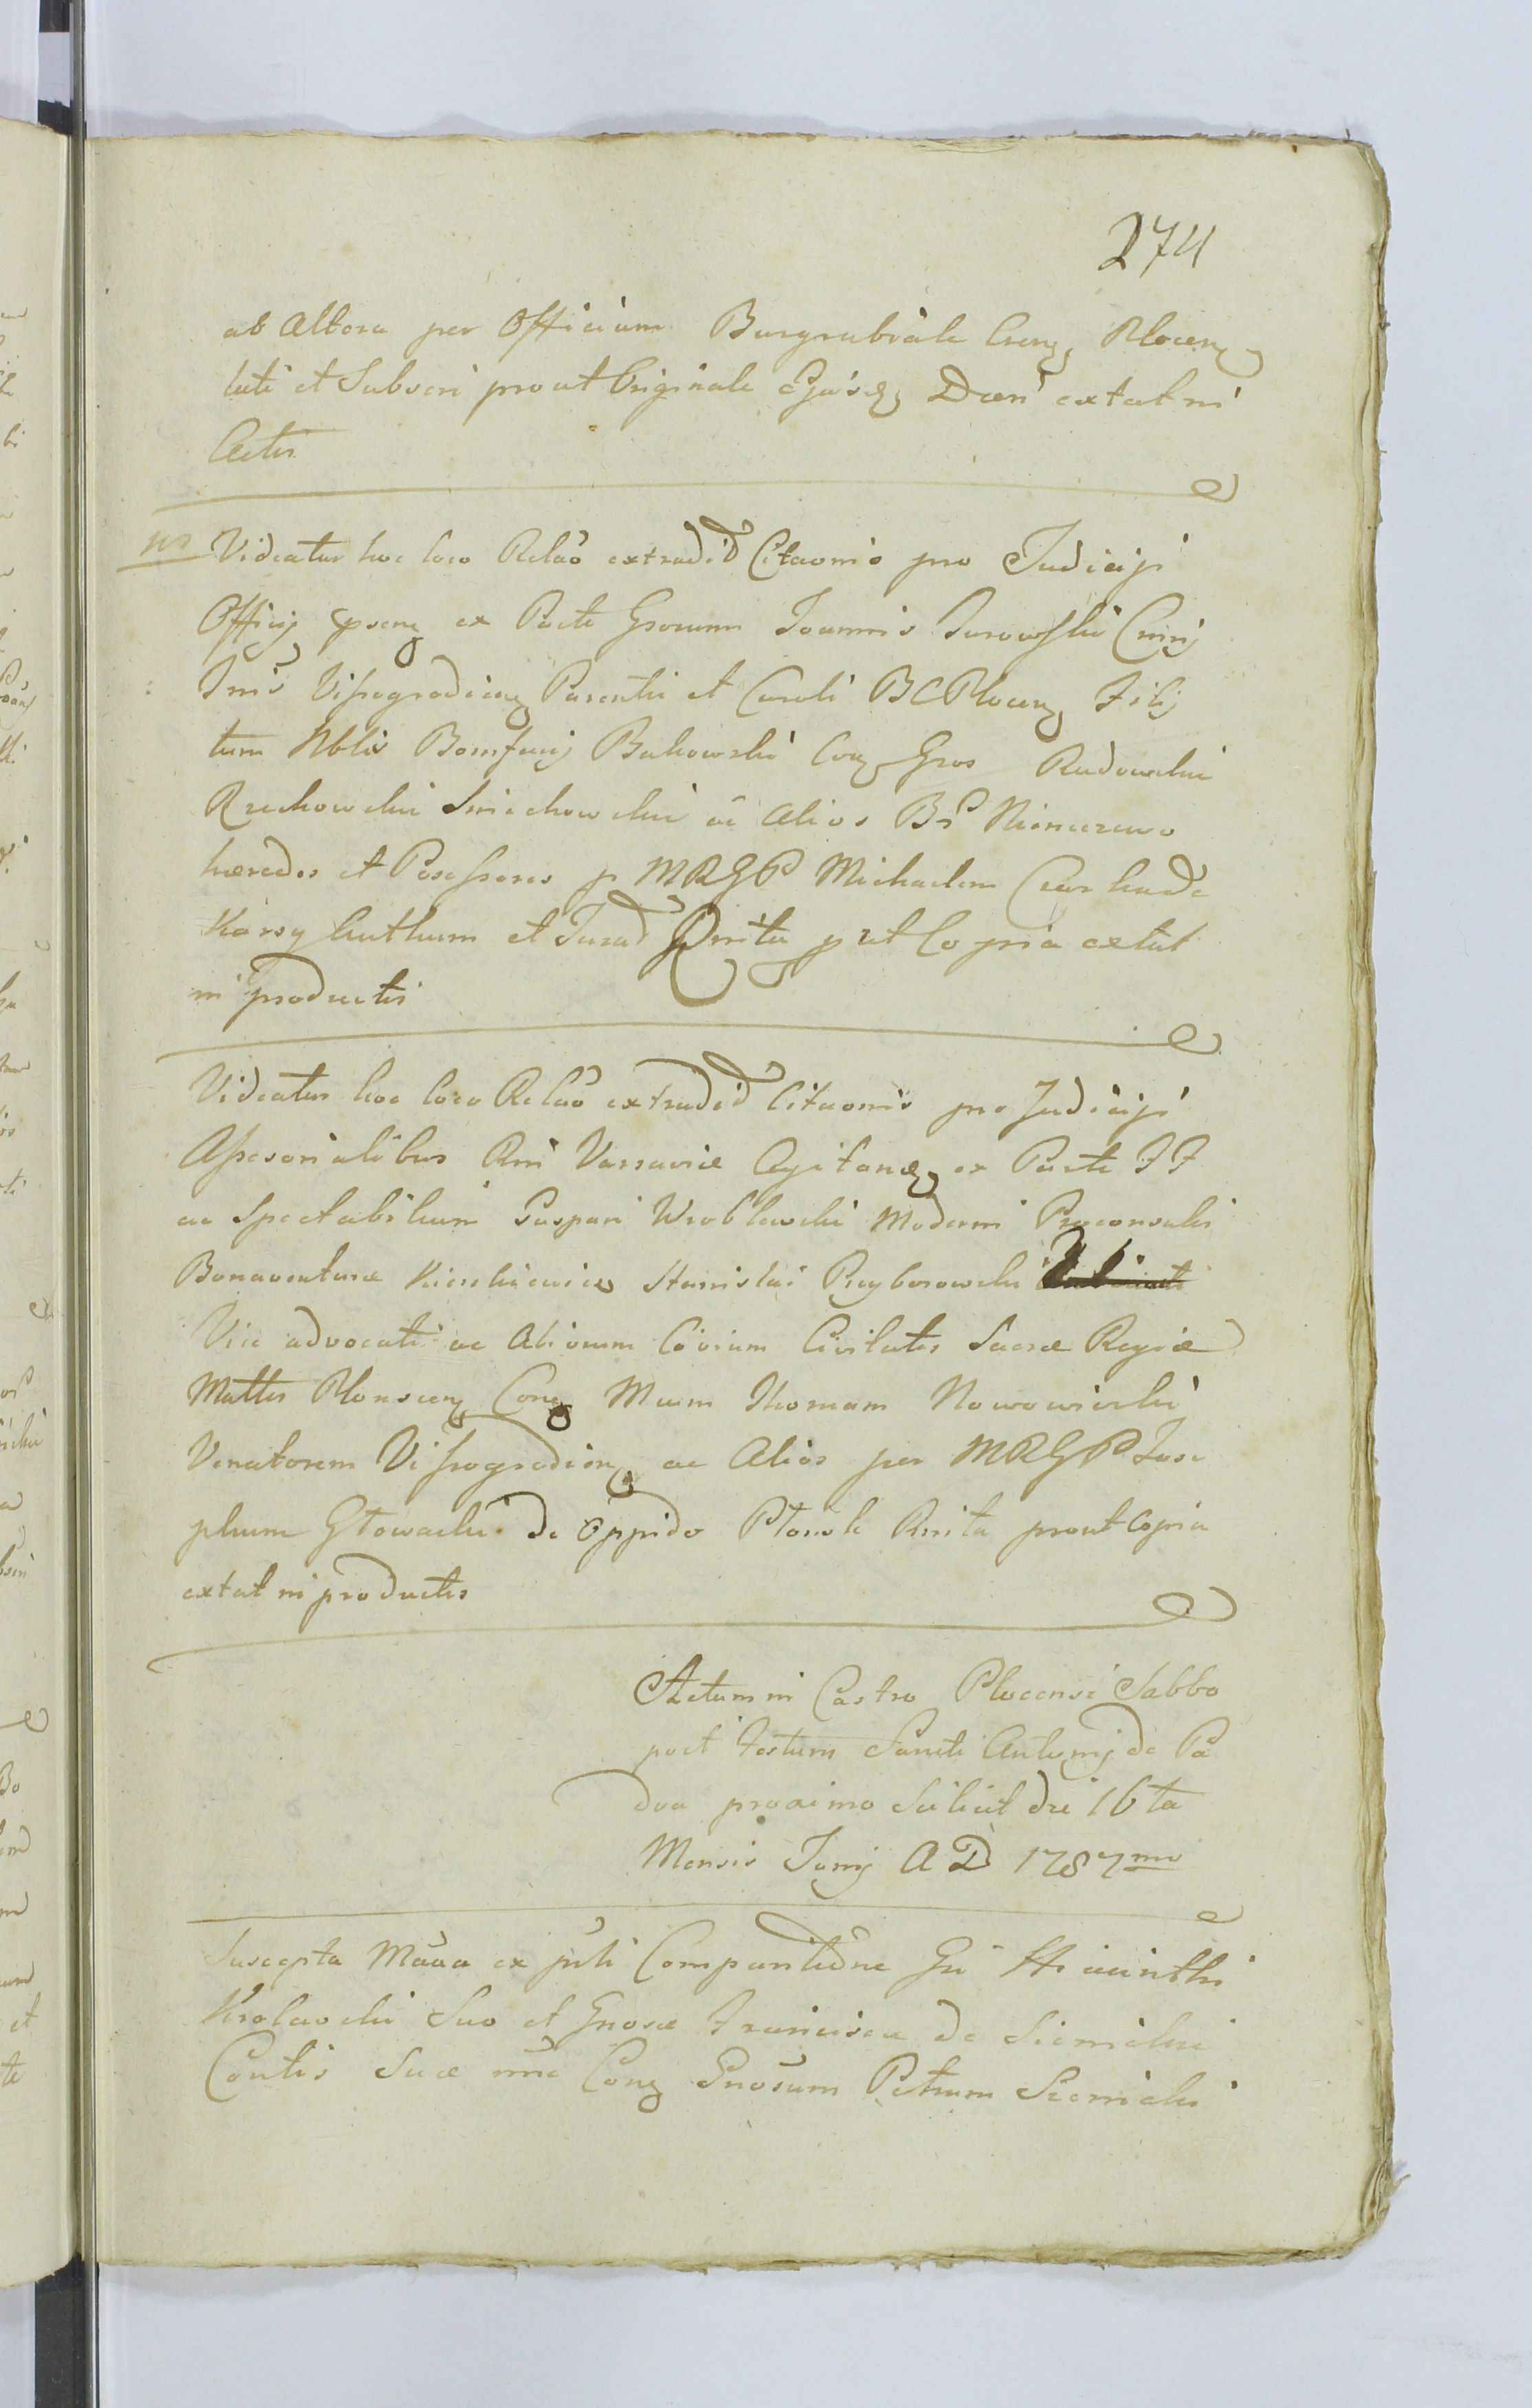 274
ab altera per Officium Burgrabiale Crens Plocens
lati et Subscri prout Originale Ejusd Decri extat in
Actis
Videatur hoc loco Relao extradit Citaonis pro Judicijs
Officij psens ex Parte Grorum Joannis Jurowski
Tris Vissogradiens Parentis et Caroli BCPlocens Filij
tum Nblis Bonifacij Bukowski Con Gros Radomskie
Rzechowskie Smiechowskie ac Alios Br Niemczewo
haeredes et Possessores p MRGP Michaelem
et Jurad Rnita put Copia extat
in productis
Videatur hoc loco Relao extradit Citaonis pro Judicijs
Assesorialibus Rni Varsaviae Agitans ex Parte FF
ac Spectabilium Gaspari Wroblewski Moderni Proconsulis
Bonaventurae Kierskiewicz Stanislai Przyborowski
Vice advocati ac Aliorum Civium Civitatis Sacrae Regiae
Mattis Plonscens Con Mcum Thomam Nowowieyski
Venatorem Vissogradien ac Alios per MRGP Jose
phum Głowacki de Oppido Płonsk Rnita prout Copia
extat in productis
Actum in Castro Plocensi Sabbo
post Festum Sancti Antonij de Pa
dua proximo Scilicet die 16ta
Mensis Junij AD 1787mo
Suscepta Maaa ex jsti Comparitione Gsi Hiacinthi
Krolewski Suo et Gnosae Franciscae de Siemickie
Contis Suae nne Con Gnosum Petrum Siemicki